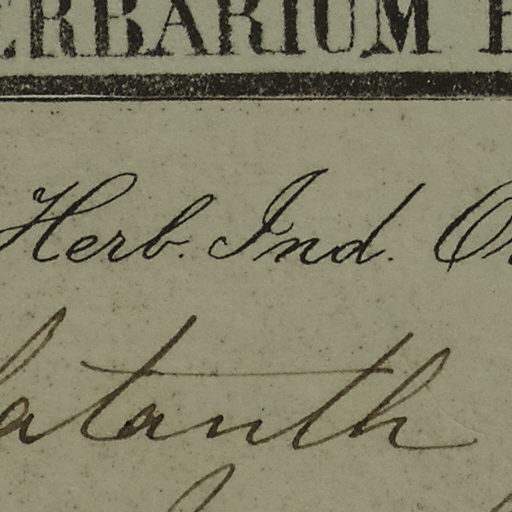 HERBARIUM
Herb. Ind. Or
latanth